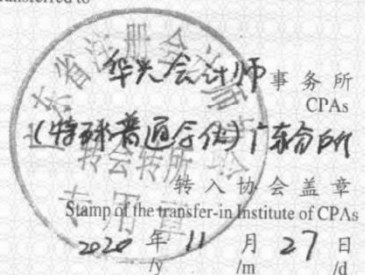 transferred to
华兴会计师事务所
CPAs
(特殊普通合伙)广东分所
转入协会盖章
Stamp of the transfer-in Institute of CPAs
2020年11月27日
/y /m /d
广东省注册会计师协会
转会转所
专用章